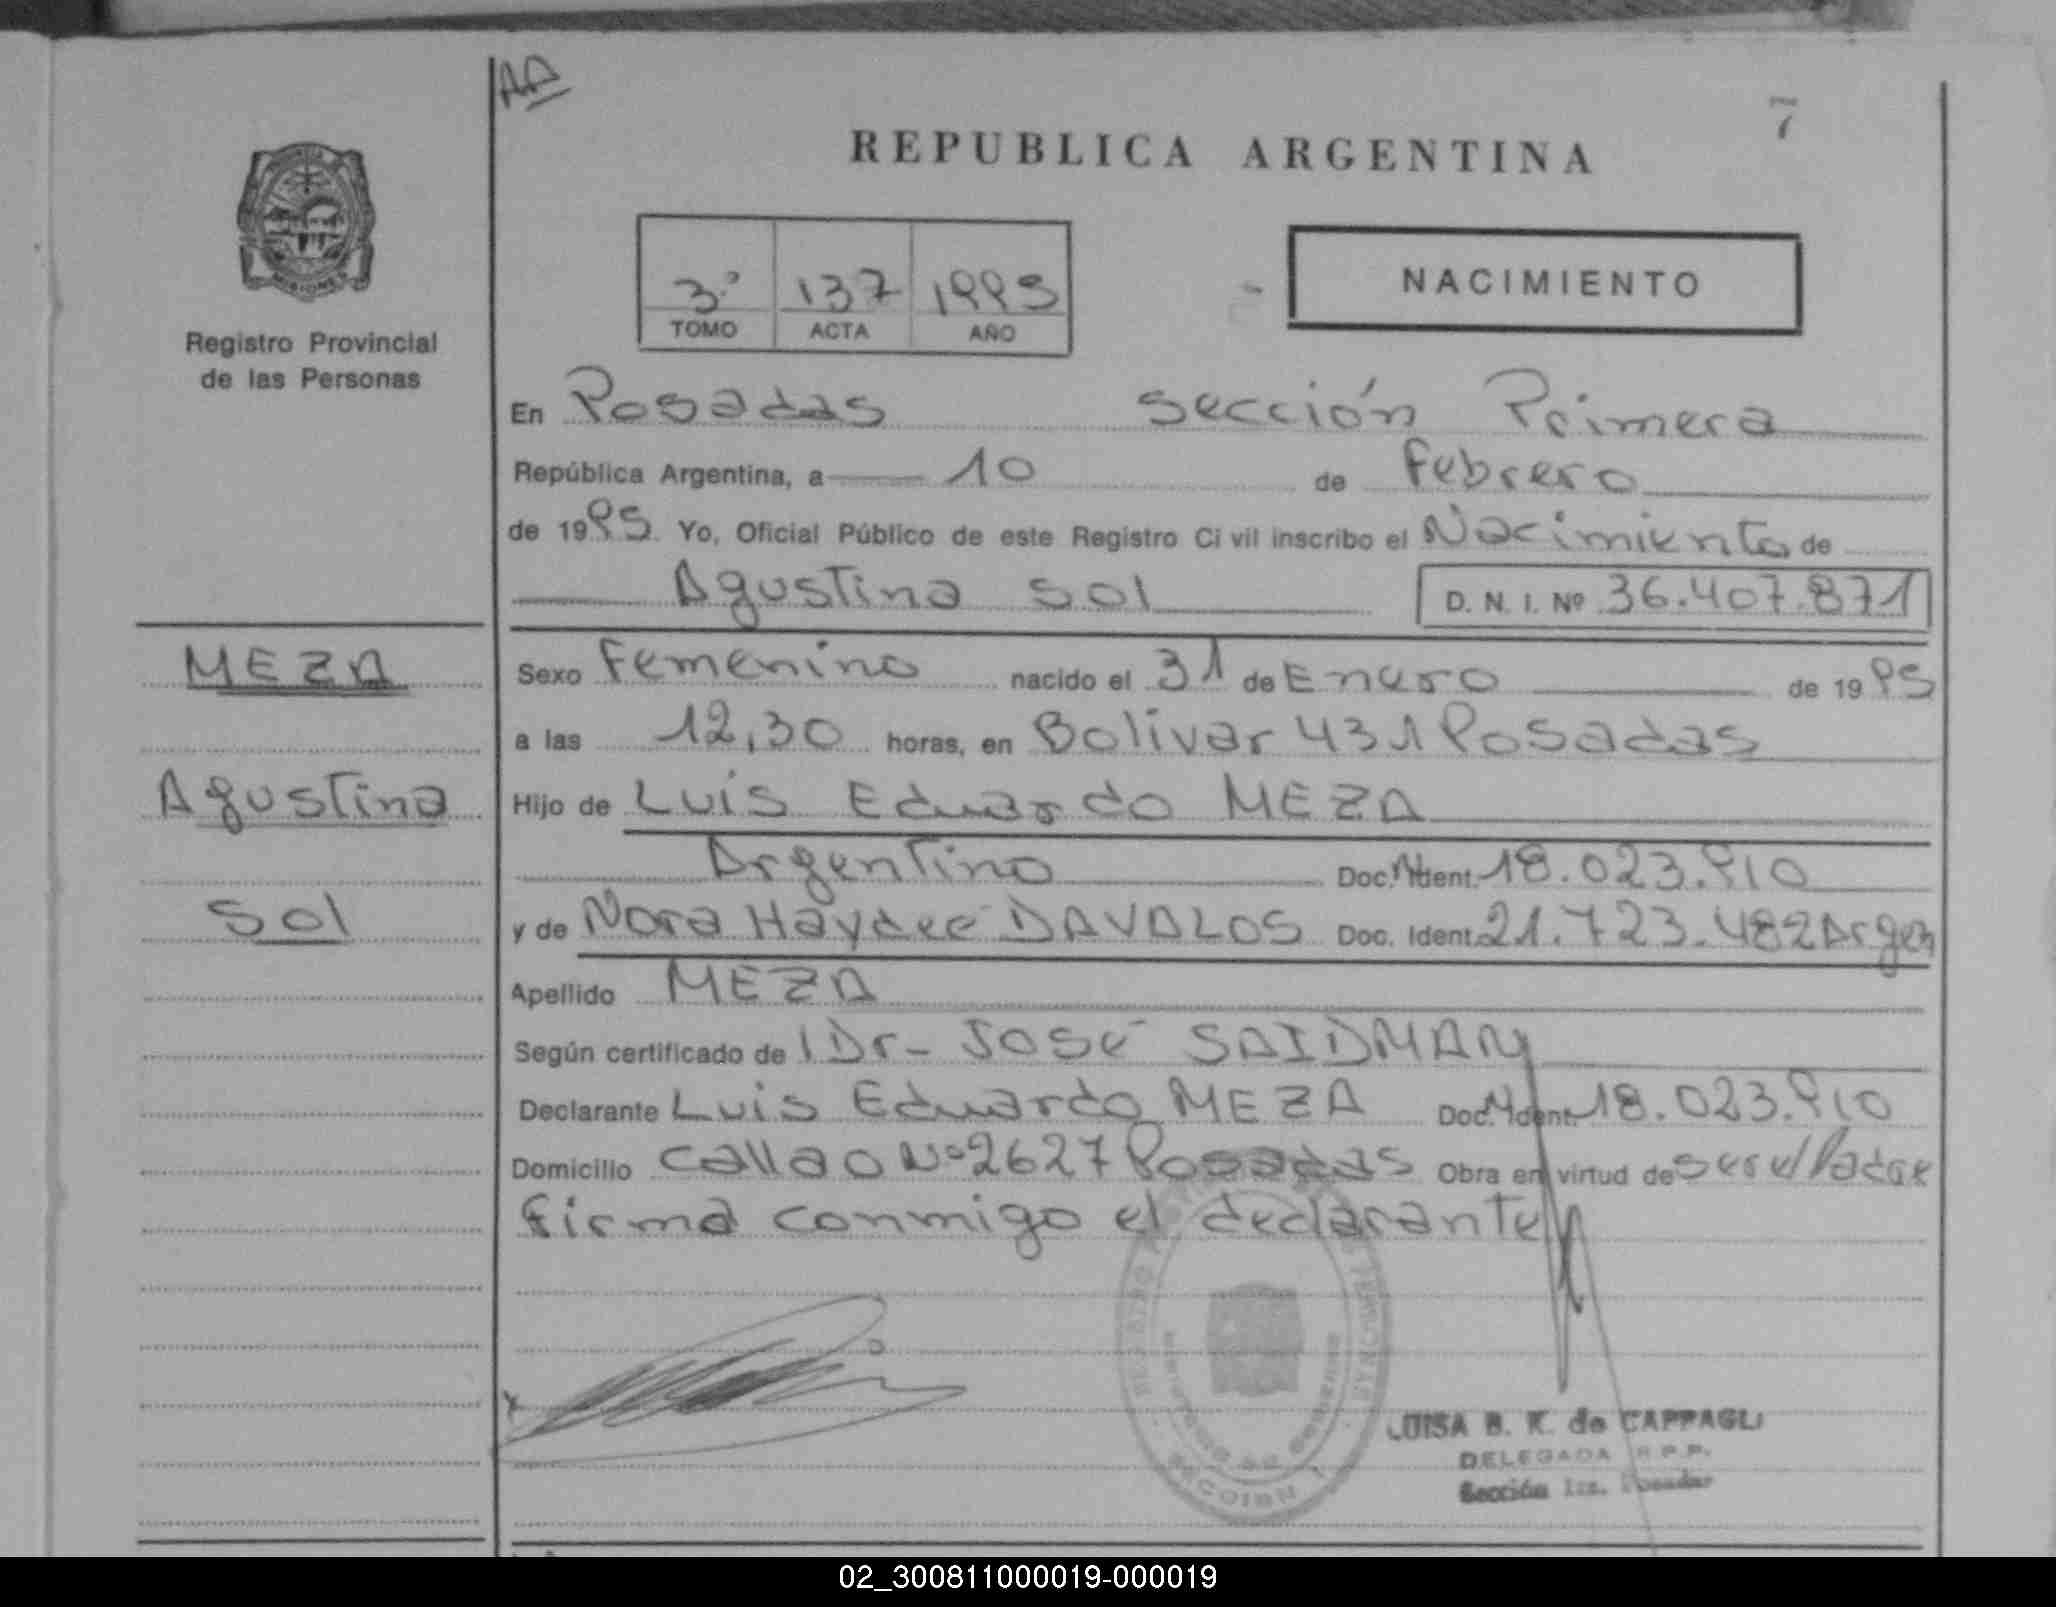 AA
7
REPUBLICA ARGENTINA
3º 137 1995
TOMO ACTA AÑO
NACIMIENTO
MISIONES
Registro Provincial
de las Personas
En Posadas sección Primera
República Argentina, a 10 de Febrero
de 1995 Yo, Oficial Público de este Registro Civil inscribo el Nacimiento de
Agustina Sol D. N. I. Nº 36.407.871
MEZA
Agustina
Sol
Sexo Femenino nacido el 31 de Enero de 1995
a las 12,30 horas, en Bolivar 431 Posadas
Hijo de Luis Eduardo MEZA
Argentino Doc. Ident. 18.023.910
y de Nora Haydeé DAVALOS Doc. Ident. 21.723.482 Argen
Apellido MEZA
Según certificado de l Dr- José SAIDMAN
Declarante Luis Eduardo MEZA Doc. Ident. 18.023.910
Domicilio Callao Nº 2627 Posadas Obra en virtud de ser el Padre
Firma conmigo el declarante
LUISA B. K. de CAPPAGLI
DELEGADA R.P.P.
Sección 1ra. Posadas
02_300811000019-000019